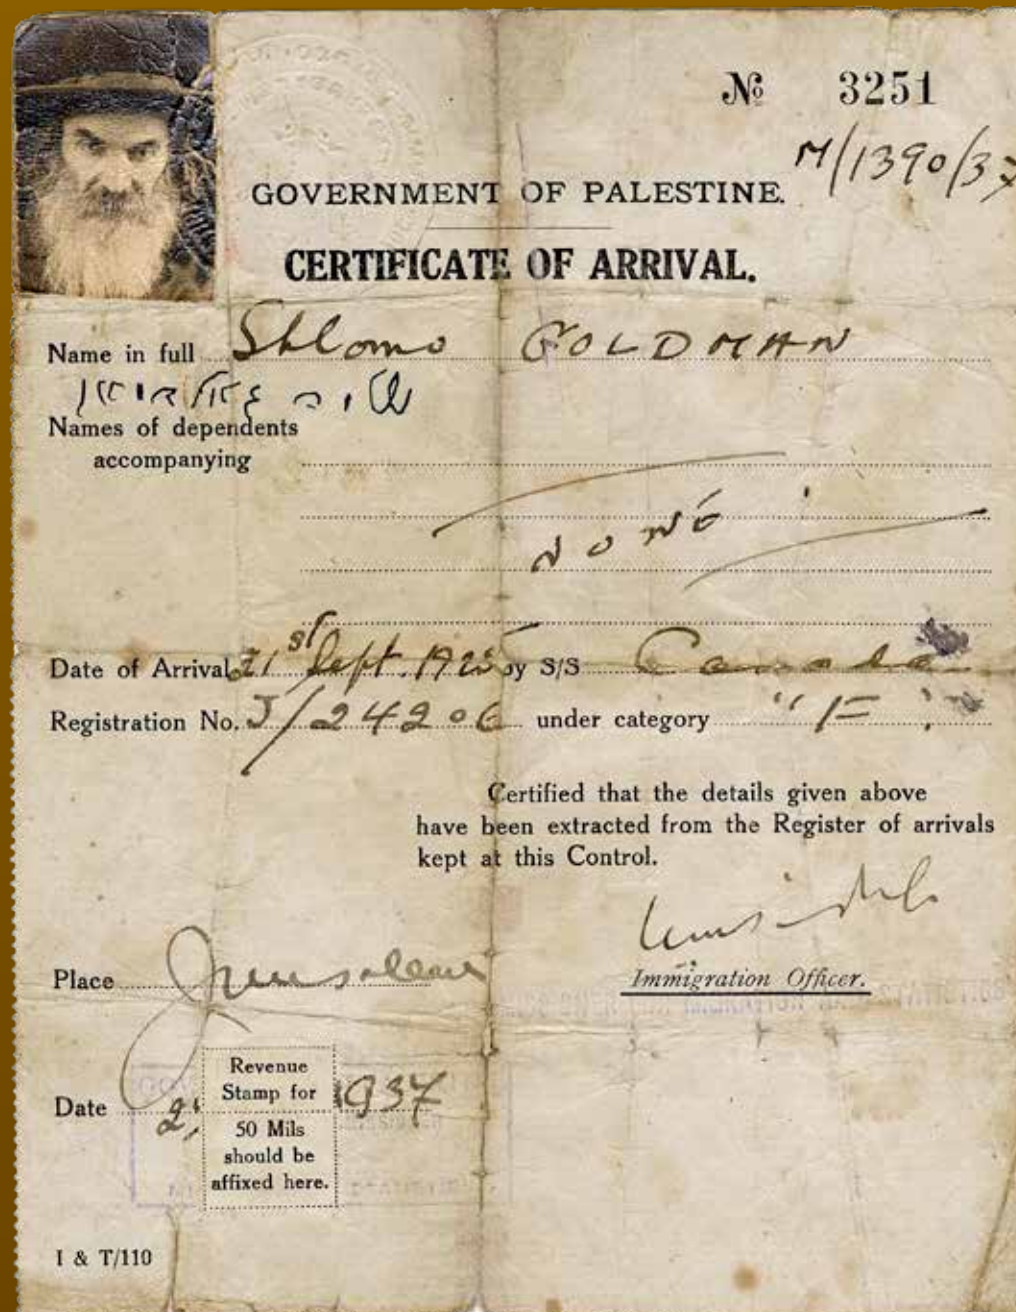 № 3251
M/1390/37
GOVERNMENT OF PALESTINE.
CERTIFICATE OF ARRIVAL.
Name in full Shlomo GOLDMAN
Names of dependents
accompanying
NONE
Date of Arrival 21st Sept. by S/S Canada
Registration No. J/24206 under category "F"
Certified that the details given above
have been extracted from the Register of arrivals
kept at this Control.
Place Jerusalem
Immigration Officer.
Date 1937
Revenue
Stamp for
50 Mils
should be
affixed here.
I & T/110